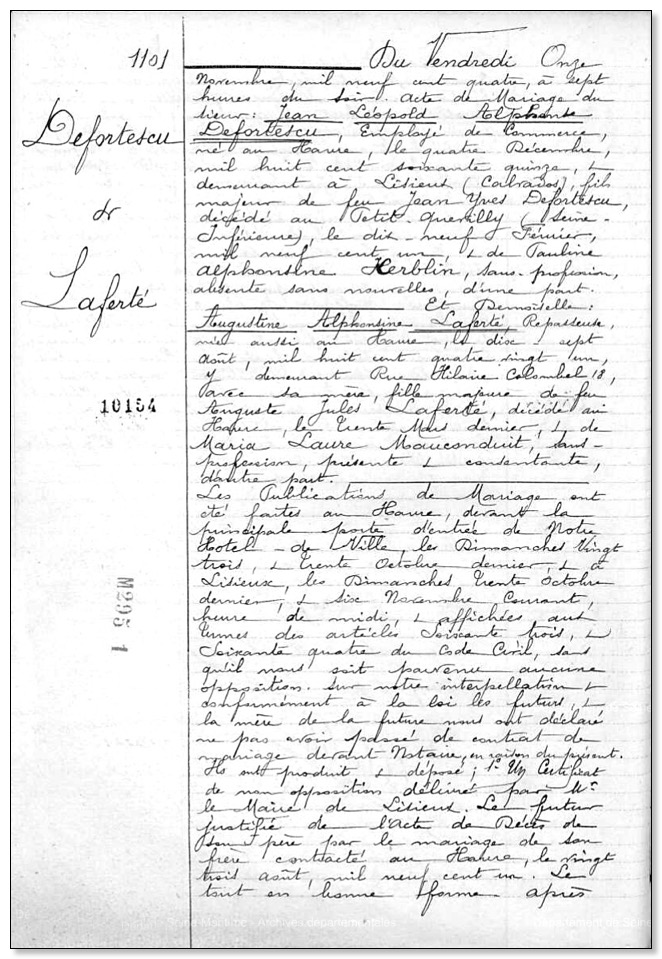 1101
Defortescu
&
Laferté
10154
M295 1
Du Vendredi Onze
Novembre, mil neuf cent quatre, à sept
heures du soir. Acte de Mariage du
sieur: Jean Léopold Alphonse
Defortescu, Employé de Commerce,
né au Havre, le quatre Décembre,
mil huit cent soixante quinze, &
demeurant à Lisieux (Calvados), fils
majeur de feu Jean Yves Defortescu,
décédé au Petit-Quevilly (Seine-
Inférieure), le dix-neuf Février,
mil neuf cent un, & de Pauline
Alphonsine Herblin, sans profession,
absente sans nouvelles, d'une part.
Et Demoiselle:
Augustine Alphonsine Laferté, Repasseuse,
née aussi au Havre, le dix-sept
Août, mil huit cent quatre vingt un,
y demeurant Rue Hilaire Colombel 18,
avec sa mère, fille majeure de feu
Auguste Jules Laferté, décédé au
Havre, le trente Mars dernier, & de
Maria Laure Mauconduit, sans-
profession, présente & consentante,
d'autre part.
Les Publications de Mariage ont
été faites au Havre, devant la
principale porte d'entrée de Notre
Hotel-de Ville, les Dimanches Vingt
trois, & trente Octobre dernier, & à
Lisieux, les Dimanches trente Octobre
dernier, & six Novembre Courant,
heure de midi, & affichées aux
termes des articles Soixante trois, &
Soixante quatre du Code Civil, sans
qu'il nous soit parvenu aucune
opposition. Sur notre interpellation &
conformément à la loi les futurs, &
la mère de la future nous ont déclaré
ne pas avoir passé de contrat de
mariage devant Notaire, en raison du présent.
Ils ont produit & déposé; 1° Un Certificat
de non opposition délivré par Mr.
le Maire de Lisieux. Le futur
justifie de l'Acte de Décès de
son père par le mariage de son
frère contracté au Havre, le vingt
trois août, mil neuf cent un. Le
tout en bonne forme après